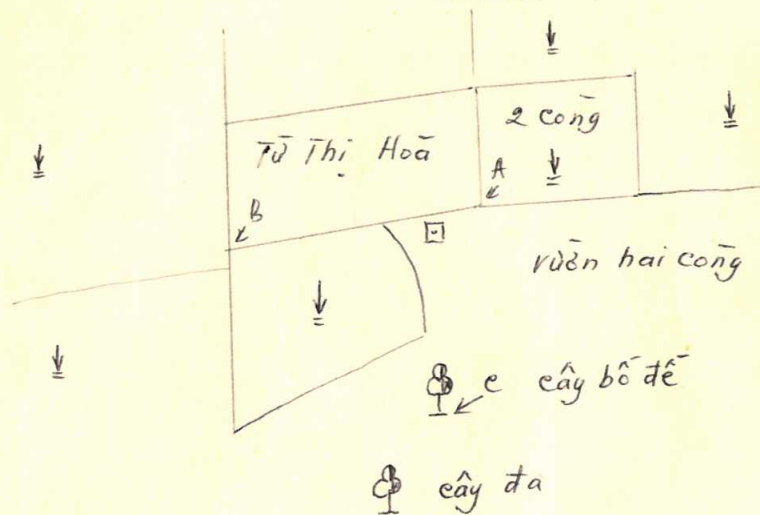 2 công
Từ Thị Hoã
A
B
vườn hai công
c cây bồ đề
cây đa